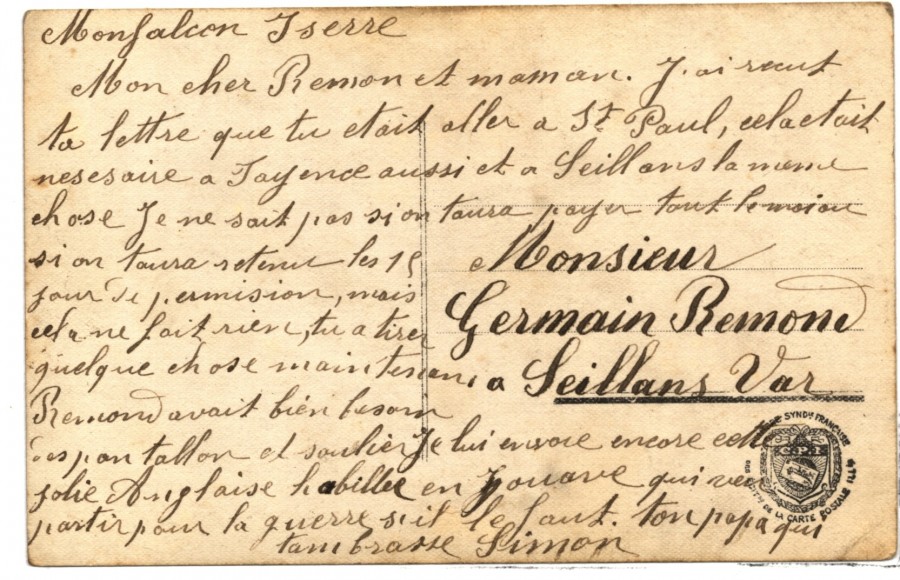 Monfalcon Iserre
Mon cher Remon et maman. J. ai recut
ta lettre que tu etait aller a St Paul, cela etait
nesesaire a Fayence aussi et a Seillans la meme
chose Je ne sait pas si on taura payer tout le moin
si on taura retenu les 15
jour de permision, mais
cela ne fait rien, tu a tirer
quelque chose maintenant
Remond avait bien besoin
des pantallon et soulier Je lui envoie encore cette
jolie Anglaise habillee en Zouave qui veu
partir pour la guerre s'il le faut. ton papa qui
tambrasse Simon
Monsieur
Germain Remond
a Seillans Var
SYNDle FRANÇAISE
DE LA CARTE POSTALE ILLée